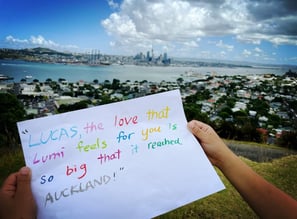 "LUCAS, the love that
Lumi feels for you is
so big that it reached
AUCKLAND!"